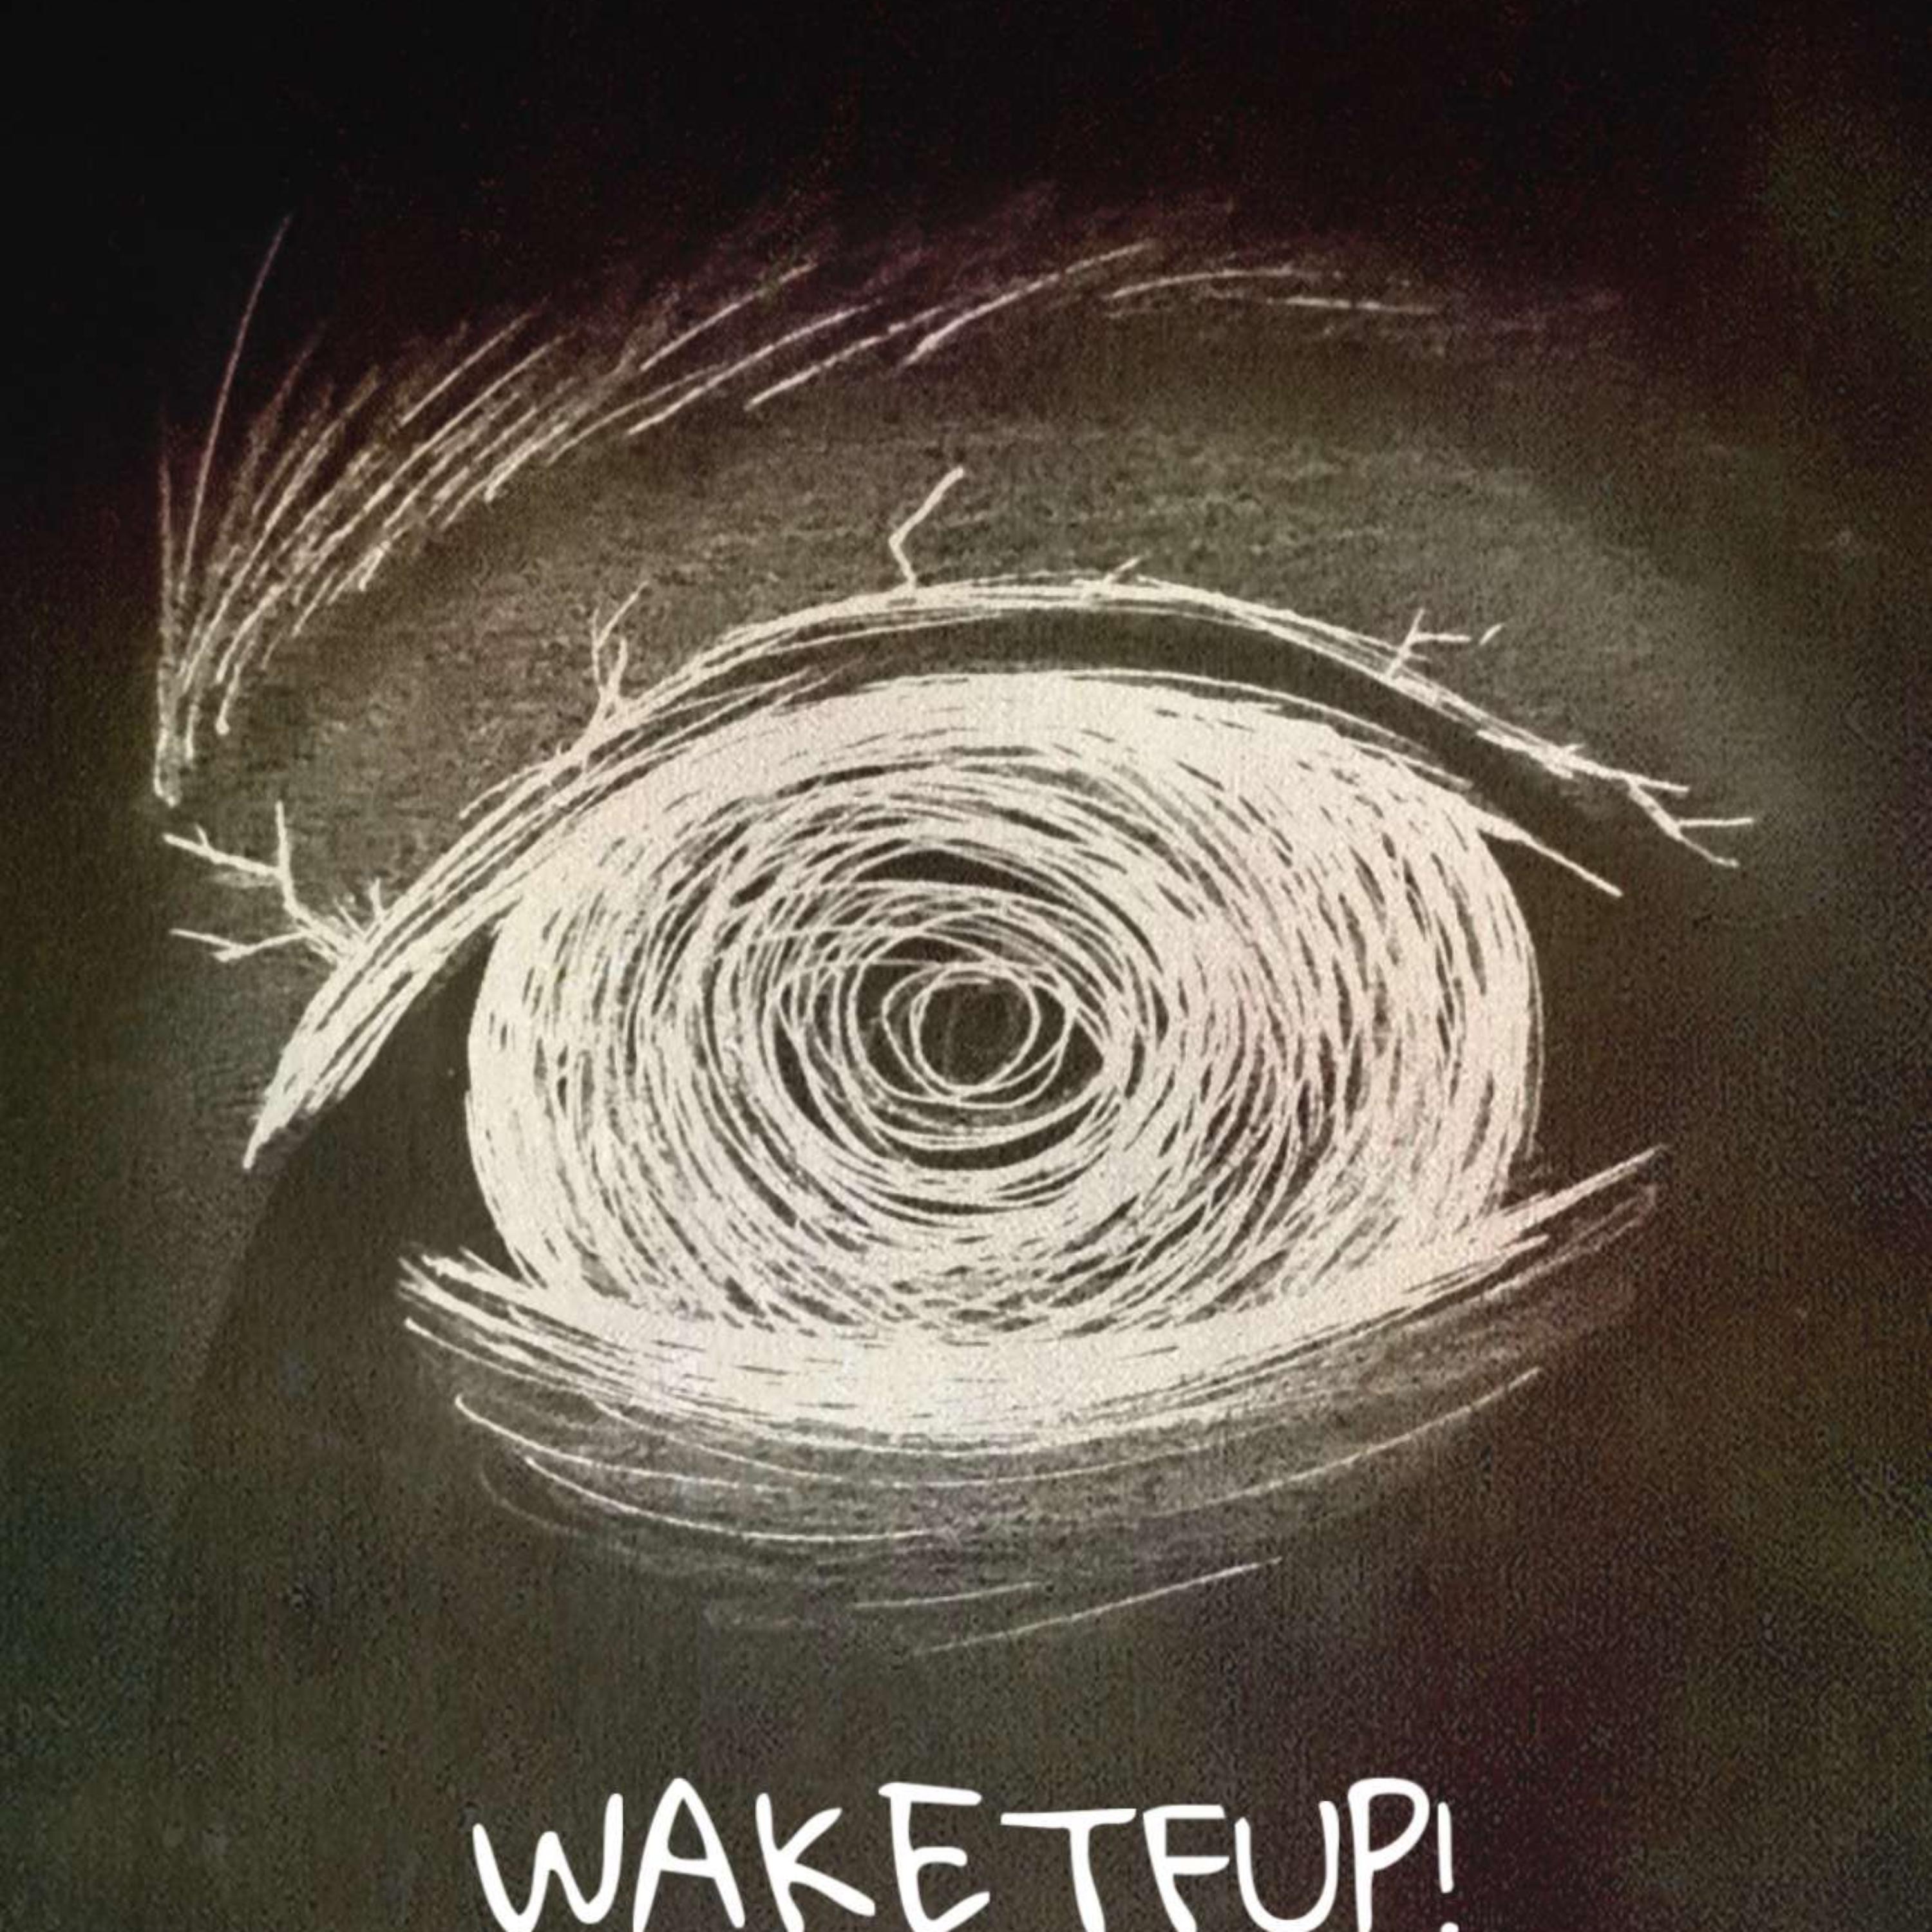 WAKE TFUP!